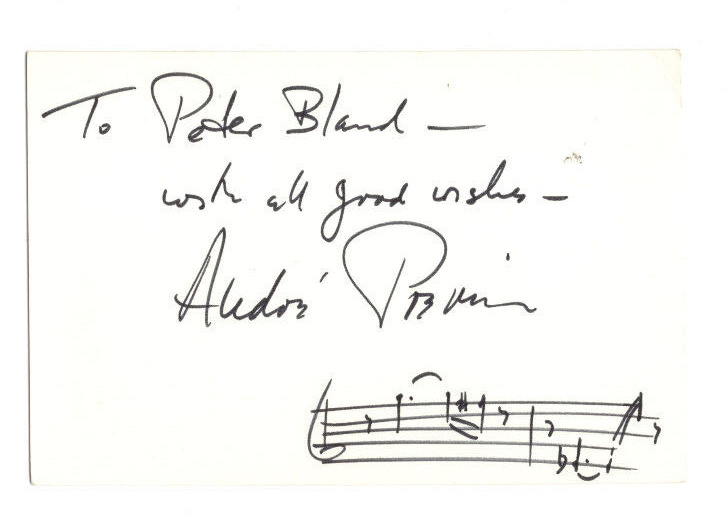 To Peter Bland —
with all good wishes —
André Previn